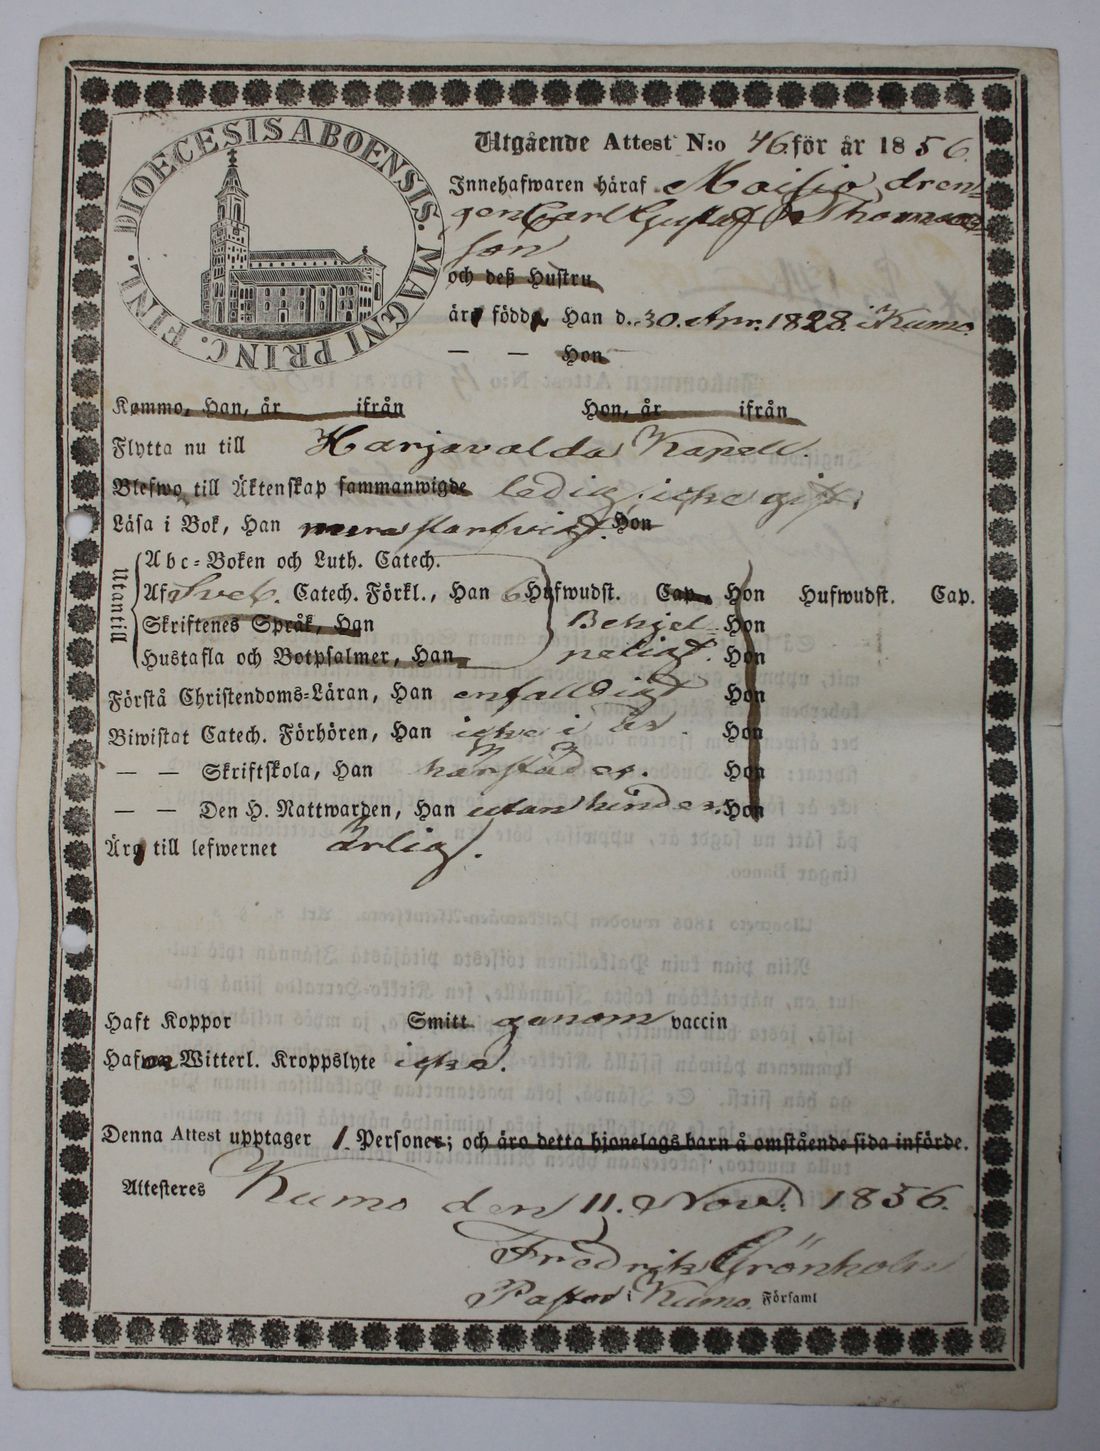 DIOECESIS ABOENSIS. MAGNI PRINC. FINL.
Utgående Attest N:o 46 för år 1856.
Innehafwaren häraf Moisio dren-
gen Carl Gustaf Thomas-
son
och deß Hustru
är född, Han d. 30. Apr. 1828. i Kumo.
— — Hon
Kommo, Han, år ifrån Hon, år ifrån
Flytta nu till Harjavalda Kapell.
Blefwo till Äktenskap sammanwigde ledig, icke gift.
Läsa i Bok, Han Hon
Utantill
Abc-Boken och Luth. Catech.
Af Sveb. Catech. Förkl., Han 6 Hufwudst. Cap. Hon Hufwudst. Cap.
Skriftenes Språk, Han Behjel- Hon
Hustafla och Botpsalmer, Han peligt. Hon
Förstå Christendoms-Läran, Han enfaldigt Hon
Biwistat Catech. Förhören, Han icke i år. Hon
— — Skriftskola, Han härstädes. Hon
— — Den H. Nattwarden, Han utan hinder. Hon
Är till lefwernet Ärlig.
Haft Koppor Smitt genom vaccin
Hafwa Witterl. Kroppslyte icke.
Denna Attest upptager 1. Personer; och äro detta hjonelags barn å omstående sida införde.
Attesteres Kumo den 11. Nov. 1856.
Fredrik Grönholm
Pastor i Kumo Församl